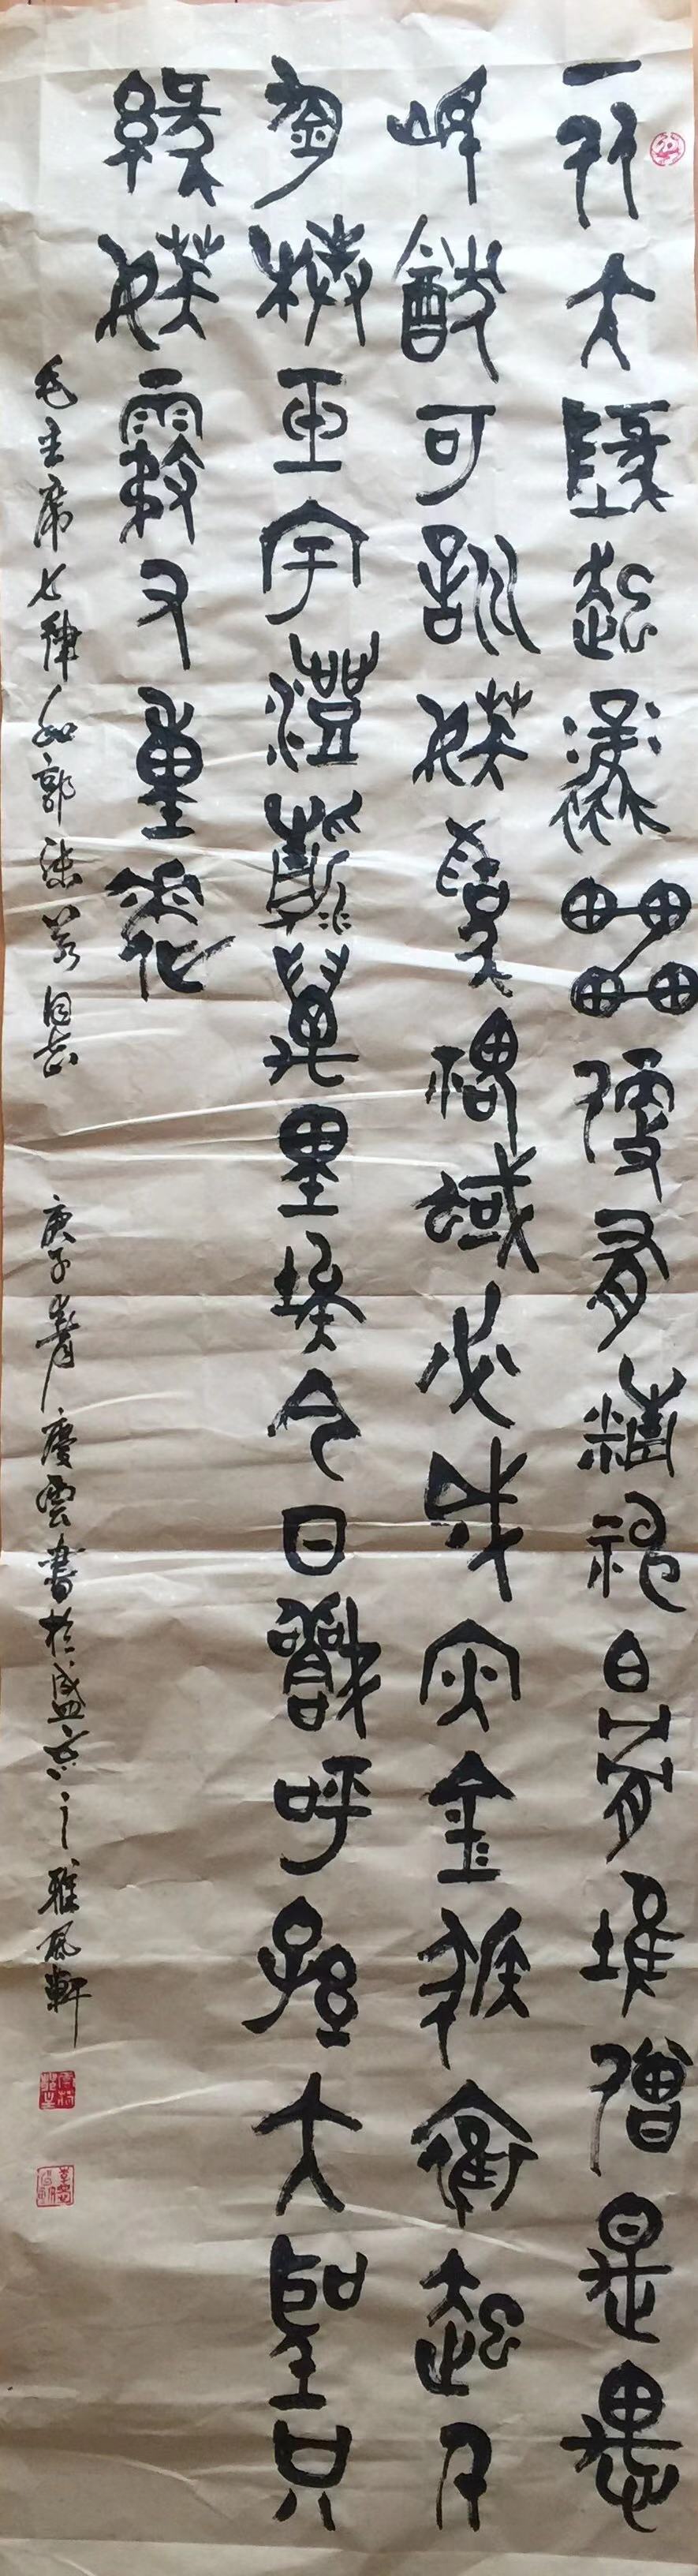 一从大墬起風雷便有精白骨堆僧是愚
氓猷可訓妖為鬼蜮必成灾金猴奮起千
鈞棒玉宇澄清萬里埃今日歡呼孫大聖只
緣妖霧又重來
毛主席七律和郭沫若同志 庚子春慶雲書於盛京之雅風軒